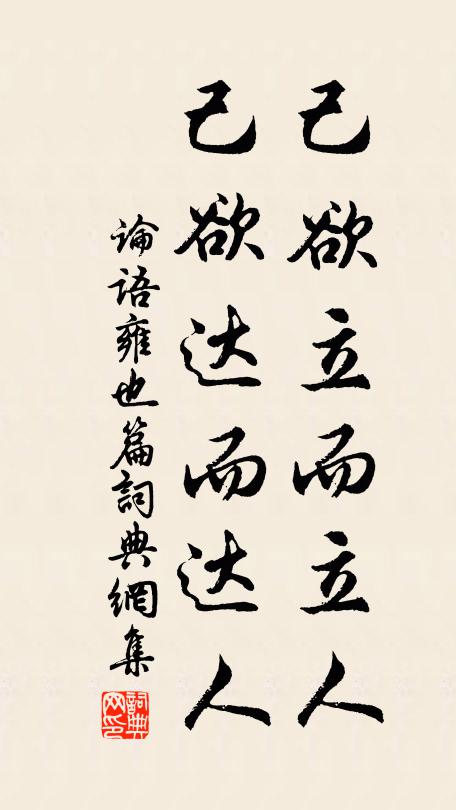 己欲立而立人
己欲达而达人
論語雍也篇詞典網集
詞典
网印